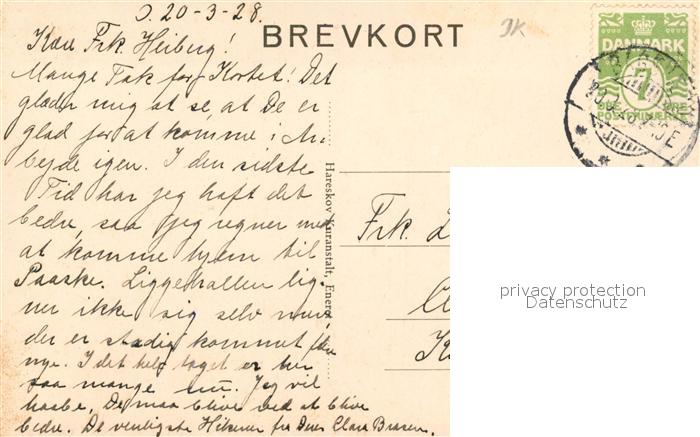 D. 20-3-28.
Kære Frk. Heiberg!
Mange Tak for Kortet! Det
glæder mig at se, at De er
glad for at komme i Ar-
bejde igen. I den sidste
Tid har jeg haft det
bedre, saa jeg regner med
at komme hjem til
Paaske. Liggehallen lig-
ner ikke sig selv mere,
der er stadig kommet flere
nye. I det hele taget er her
saa mange nu. Jeg vil
haabe, De maa blive ved at blive
bedre. De venligste Hilsener fra Deres Clara
BREVKORT
Hareskov Kuranstalt, Eneret
DANMARK
7
ØRE
Frk.
privacy protection
Datenschutz